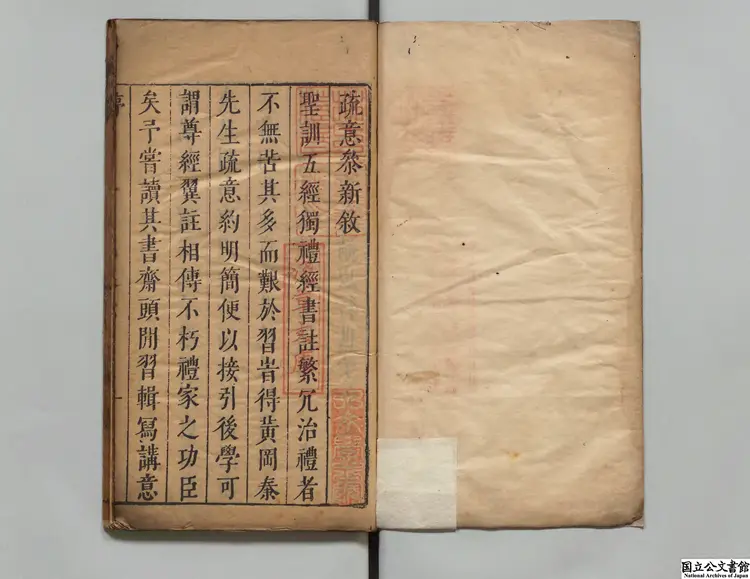 疏意參新敘
聖訓五經獨禮經書註繁冗治禮者
不無苦其多而艱於習昔得黃岡秦
先生疏意約明簡便以接引後學可
謂尊經翼註相傳不朽禮家之功臣
矣予嘗讀其書齋頭閒習輯寫講意
國立公文書館
National Archives of Japan